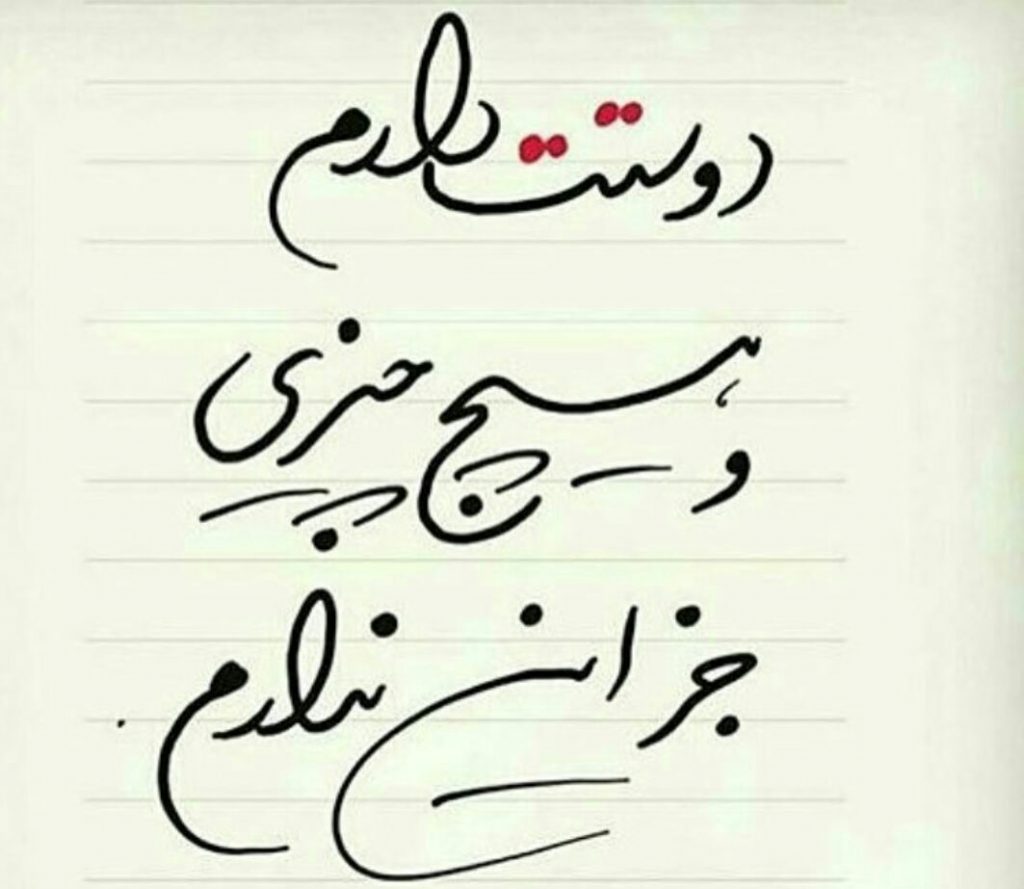 دوستت دارم
و هیچ چیزی
جز این ندارم